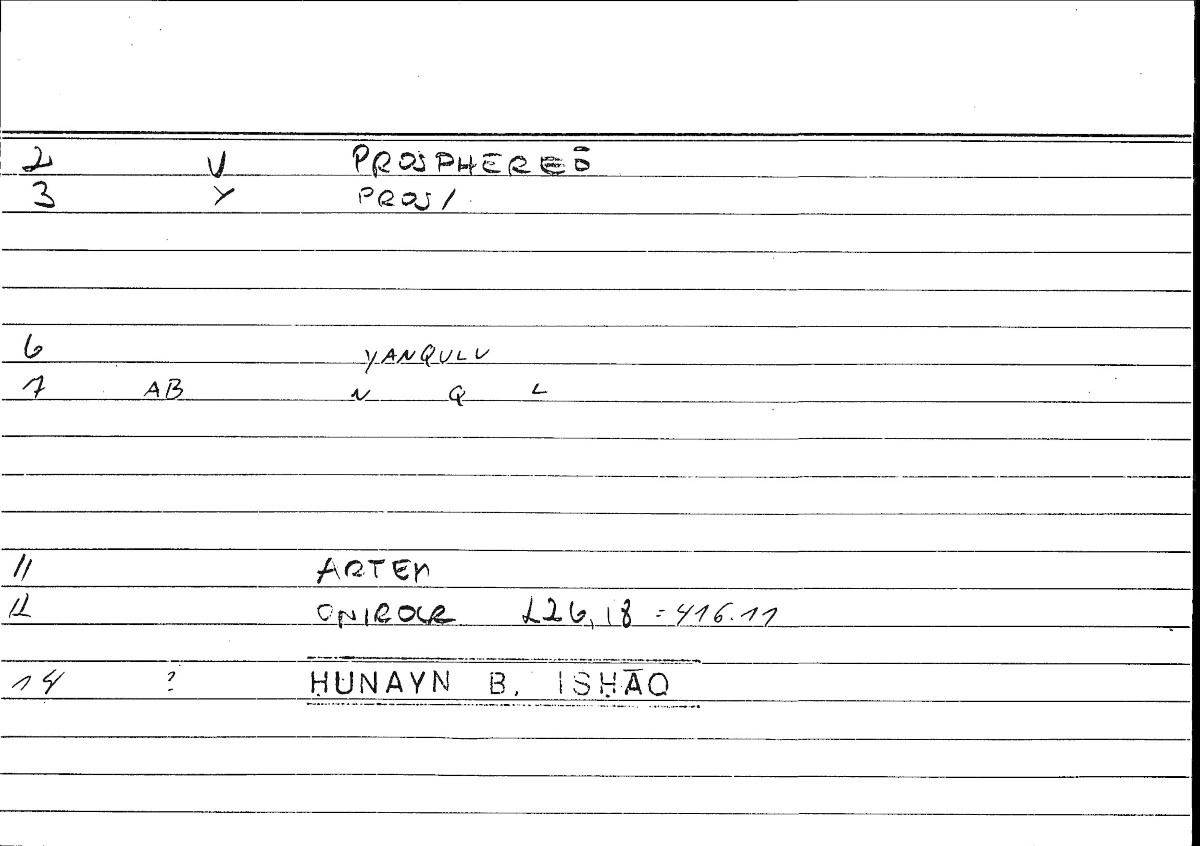 2 V PROSPHEREŌ
3 Y PROS/
6 YANQULU
7 AB N Q L
11 ARTEM
12 ONIROCR 226,18 = 416.11
14 ? ḤUNAYN B. ISḤĀQ